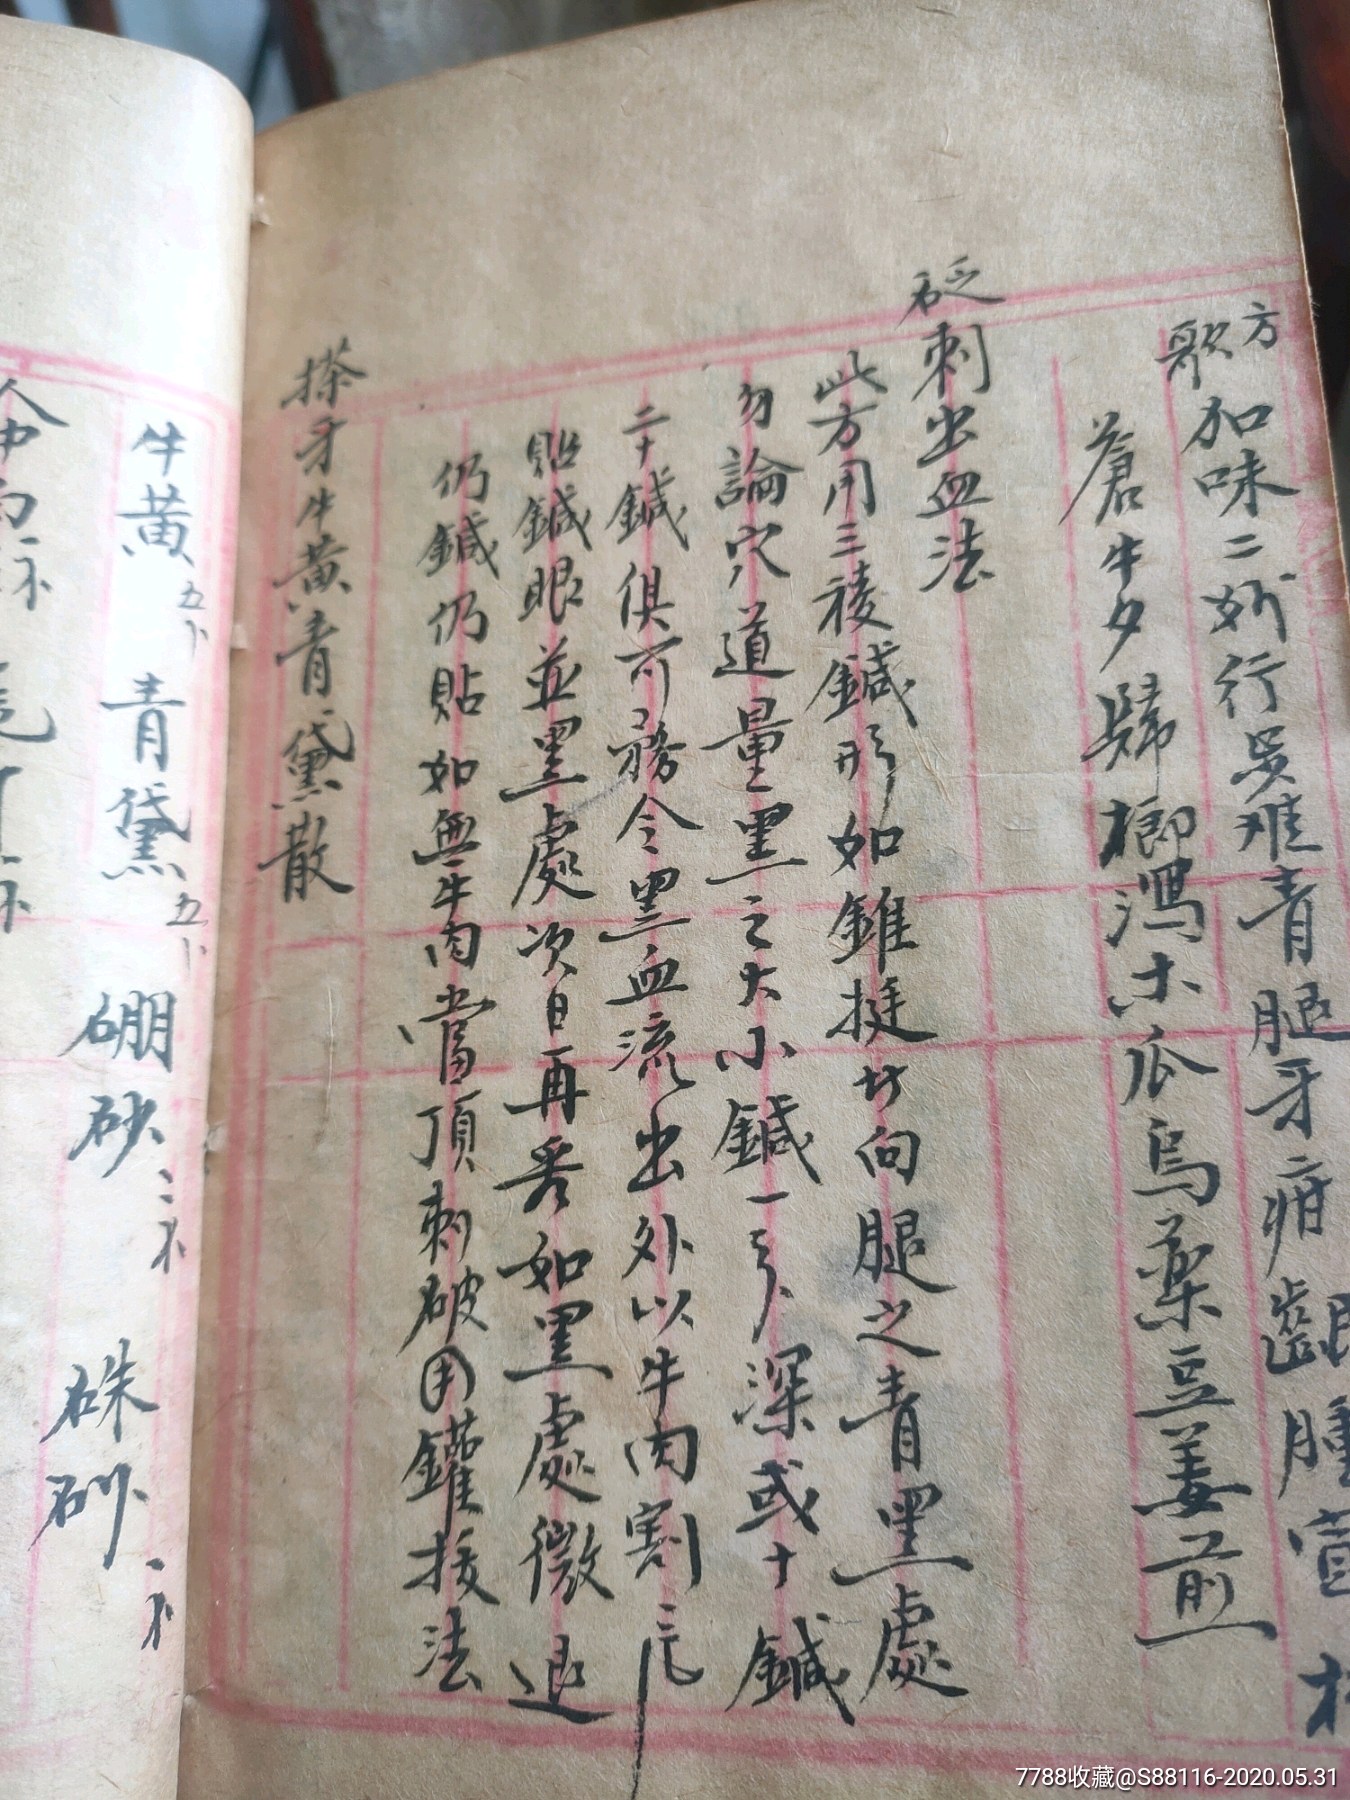 方歌 加味二妙行步难青腿牙疳齦腫宣
蒼牛夕歸榔瀉木瓜烏藥豆姜煎
砭刺出血法
此方用三稜鍼形如錐挺 向腿之青黑處
勿論穴道量黑之大小鍼一 深或十鍼
二十鍼俱可務令黑血流出外以牛肉割 片
貼鍼眼並黑處次日再看如黑處微退
仍鍼仍貼如無牛肉當頂刺破用鑵拔法
搽牙牛黃青黛散
牛黃五卜 青黛五卜 硼砂二 硃砂一